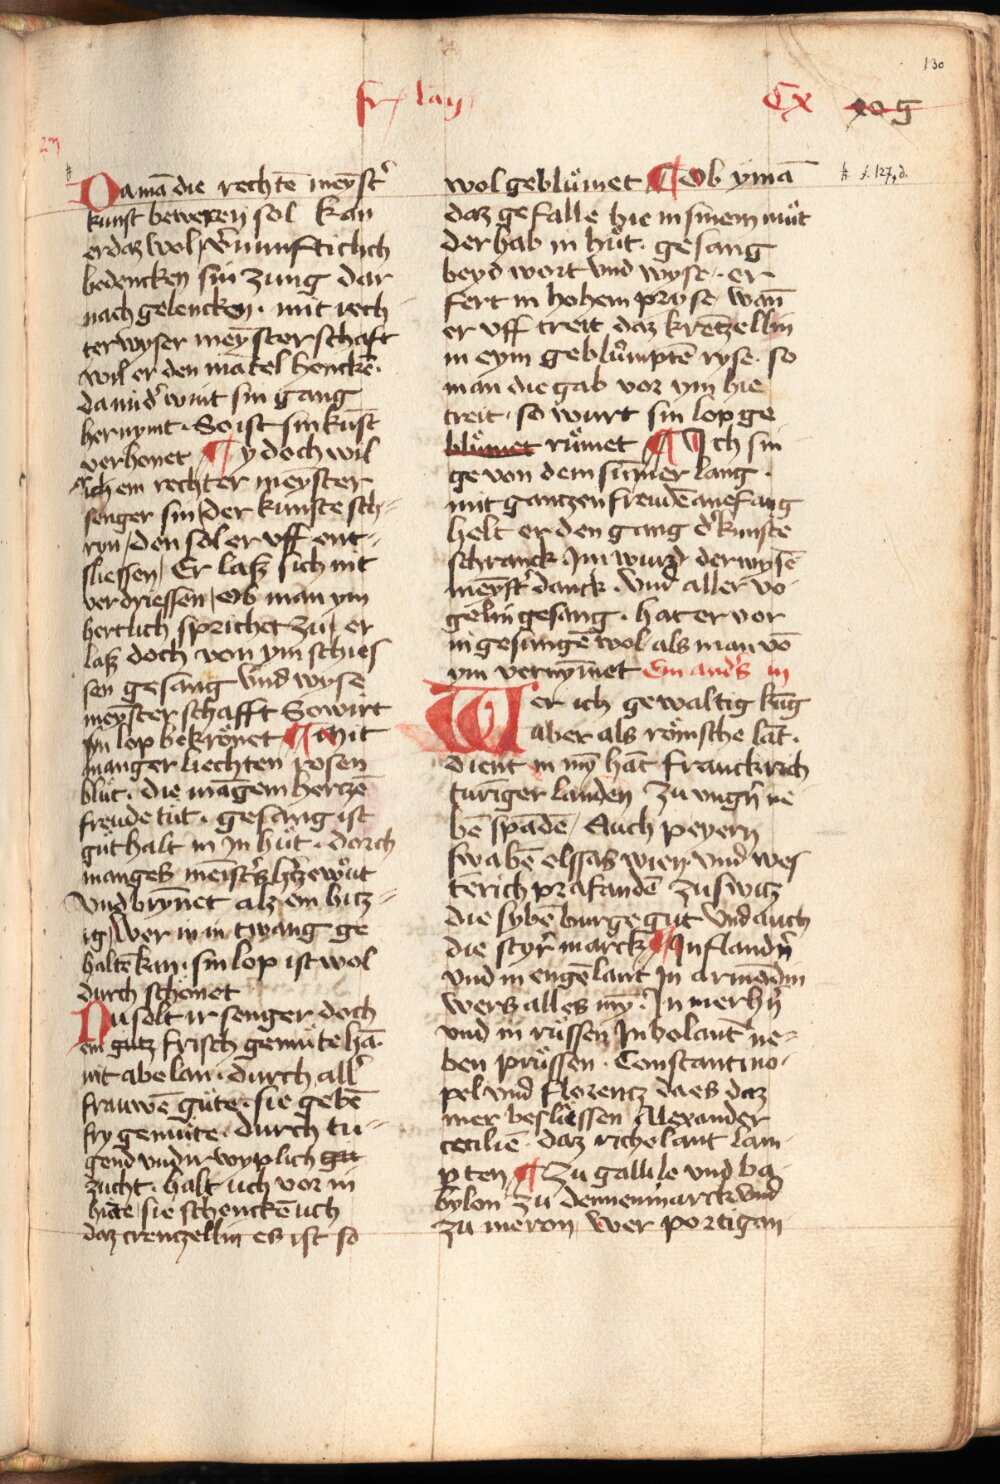 130
fr lan
Cx
Da mā die rechtē meystꝰ
kunst beweren sol kan
er daz wol v̾nunfticlich
bedencken sin zung dar
nach gelencken · mit rech
ter wyser meysterschaft
wil er den mātel henckē ·
da mid̾ wint sin gang
hernymt · So ist sin kūst
verhonet ¶ y doch wil
ich ein rechter meyster
senger sin / der kunste sch=
ryn / den sol er vff ent=
sliessen / Er laß sich nit
verdriessen / Ob man ym
hertlich sprichet zu / er
laß doch von ym schies
sen gesang vnd wyse
meysterschafft So wirt
sin lop bekrönet ¶ Mit
manger liechten rosen
blüt · die māgem hertzē
freude tüt · gesang ist
güt halt in in hüt · dorch
manges meist̾s h̾tze wüt
Vnd brynet alz ein hitz=
ig / Wer in in twang ge
haltē kan · sin lop ist wol
durch schönet
Nu solt ir senger doch
ein gutz frisch gemüte hā
nit abelan · durch all̾
frauwē güte · sie gebē
fry gemüte · durch tu=
gend vnd ir wyplich gut
zucht · halt uch vor in
hüte / sie schenckē uch
daz crentzellin es ist so
wol geblümet ¶ Ob ymā
daz gefalle hie in sinem müt
der hab in hüt · gesang
beyd wort vnd wyse · er
fert in hohem pryse / wān
er vff treit daz krentzellin
in eym geblümptē ryse · so
man die gab vor ym hie
treit · so wurt sin lop ge
blümet rümet ¶ Ich sin
ge von dem sūmer lang ·
mit gantzen freudē anefang
helt er den gang d̾ kunste
schranck · Im wurt der wysē
meyst̾ danck · Vnd aller vo
gelin gesang · hat er vor
in gesungē wol als man vō
ym vernymet Ein and̾s in
Wer ich gewaltig kūg
aber als römsche lāt ·
dient in mȳ hāt franckrich
turinger landen zu vng̾n ne
bē spadē / Auch peyern
swabē elssas wien vnd wes
terich prafandē zu switz
die sybē burge gut Vnd auch
die styr̾ marck ¶ In fland̾n
vnd in engelant In armēdin
wers alles mȳ · In merh̾n
vnd in rüssen In bolant ne=
ben prüssen · Constantino
pel vnd florentz da es daz
mer beslüssen Alexander
ceciliē · daz riche lant lam
pten ¶ Zu gallile vnd ba
bylon zu dennenmarck vnd
zu meron / Wer portigan